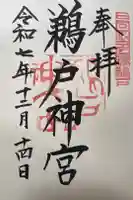 奉拝
鵜戸神宮
令和七年十二月十四日